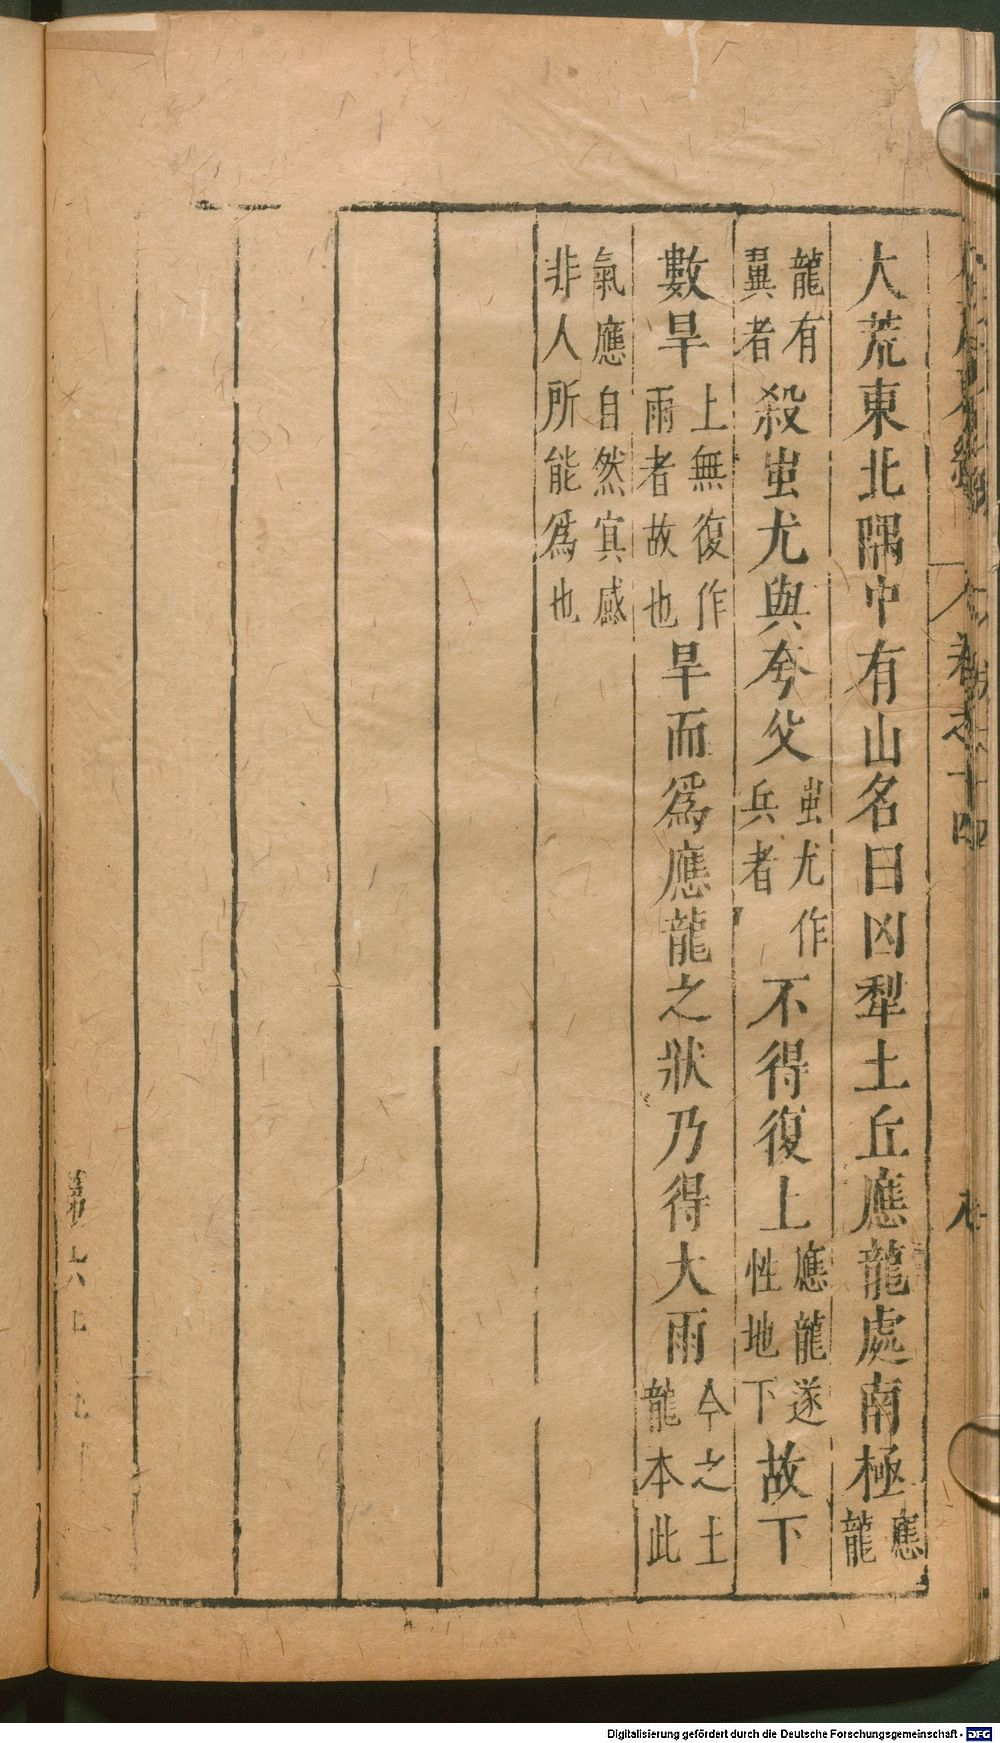 大荒東北隅中有山名曰凶犁土丘應龍處南極應龍
龍有翼者殺蚩尤與夸父蚩尤作兵者不得復上應龍遂性地下故下
數旱上無復作雨者故也旱而爲應龍之狀乃得大雨今之土龍本此
氣應自然冥感非人所能爲也
卷之十四
第六
Digitalisierung gefördert durch die Deutsche Forschungsgemeinschaft - DFG